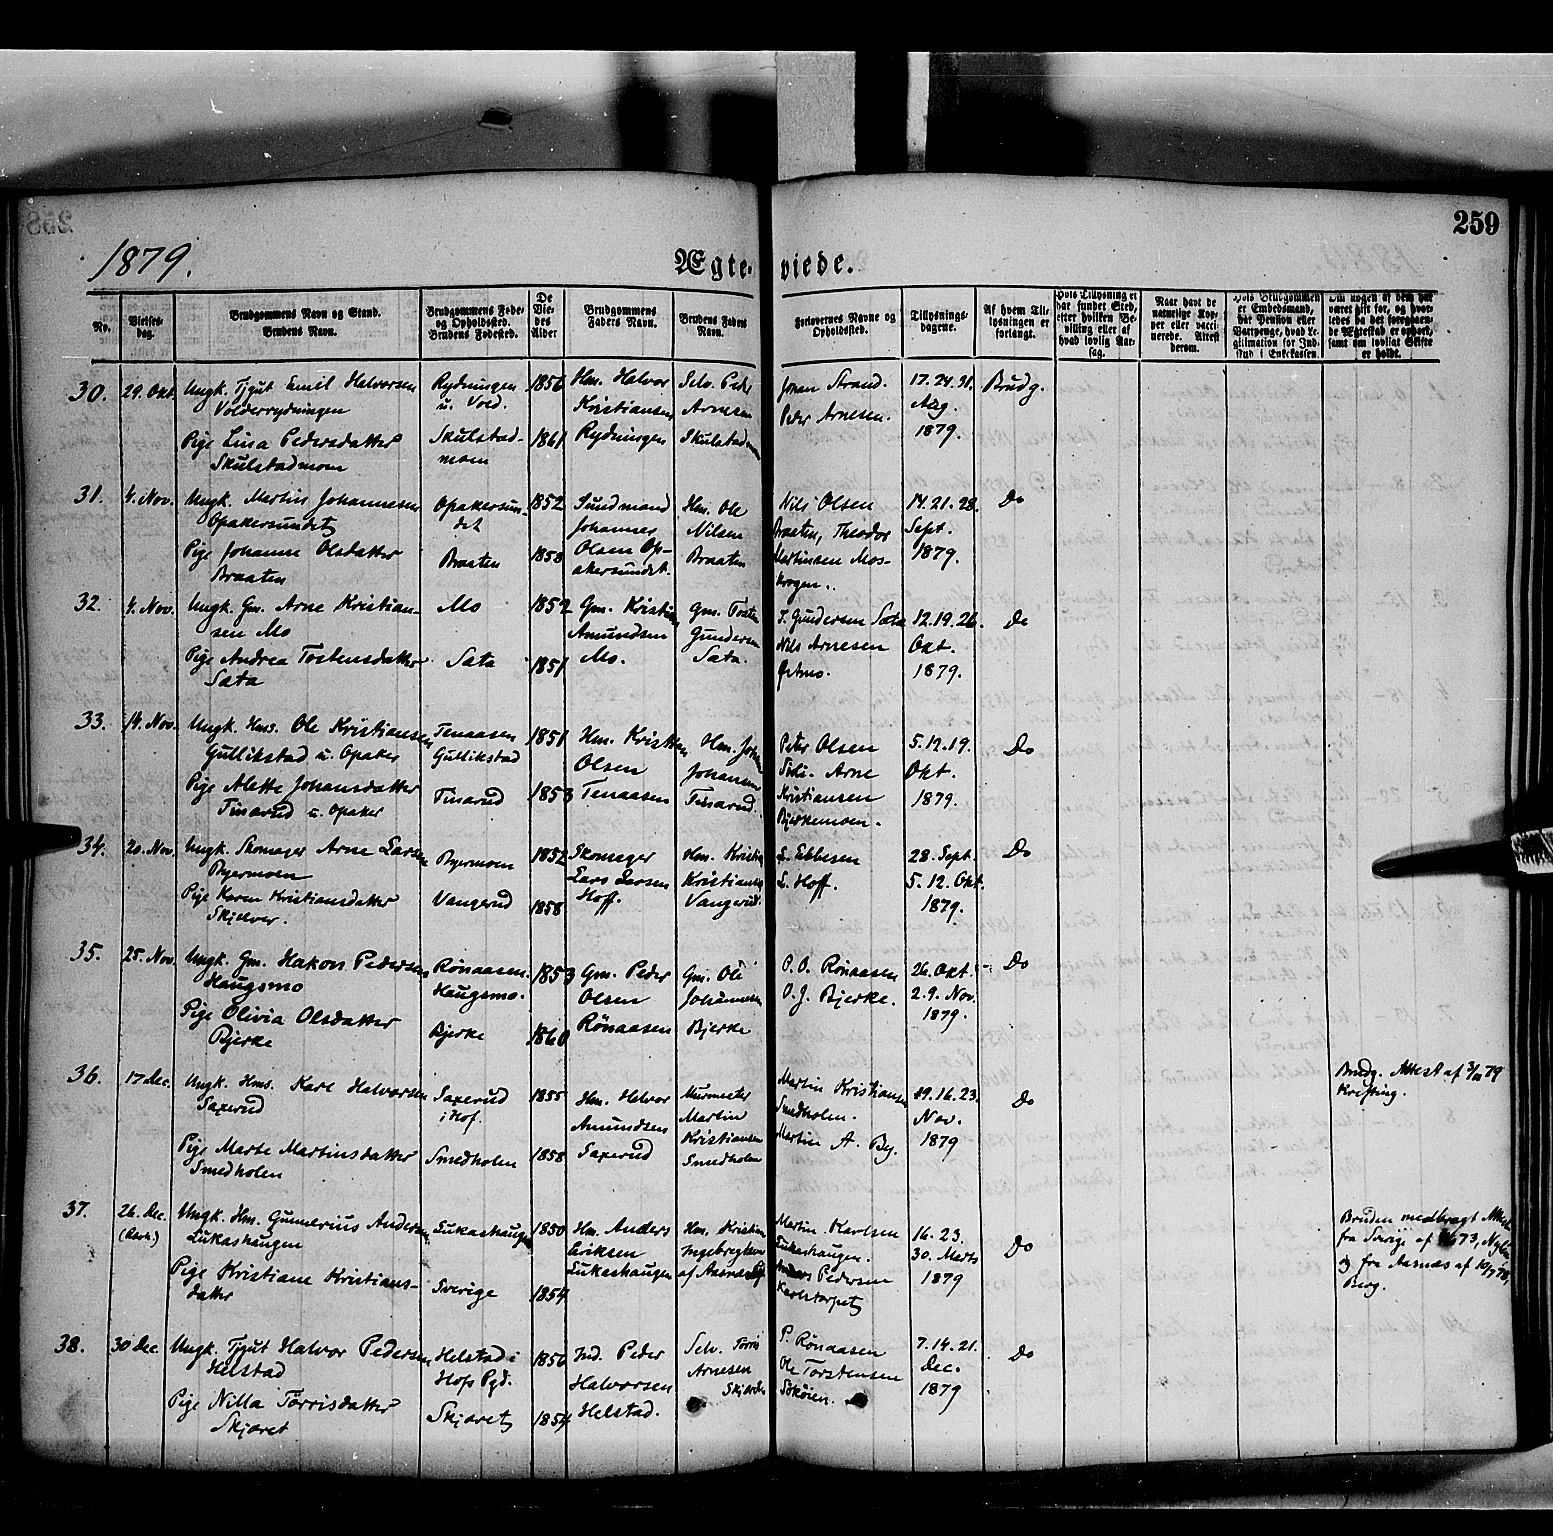 259
1879.
Ægteviede.
No.
Vielses-
dag.
Brudgommens Navn og Stand.
Brudens Navn.
Brudgommens Føde-
og Opholdssted.
Brudens Fødested.
De
Vie-
des
Alder
Brudgommens
Faders Navn.
Brudens Faders
Navn.
Forlovernes Navne og
Opholdssted.
Tillysnings-
dagene.
Af hvem Til-
lysningen er
forlangt.
Hvis Tillysning ei
har fundet Sted,
efter hvilken Be-
villing eller af
hvad lovlig Aar-
sag.
Naar havt de
naturlige Kop-
per eller vacci-
nerede. Attest
derom.
Hvis Brudgommen
er Embedsmand,
har Pension eller
Vartpenge, hvad Le-
gitimation for Ind-
skud i Enkekassen.
Om nogen af dem har
været gift før, og hvor-
ledes da det foregaaen-
de Ægteskab er ophørt,
samt om lovligt Skifte
er holdt.
30. 29. Okt. Ungk. Tjgut Emil Halvorsen
Volderrydningen
Rydningen
u. Vold.
1856 Hm. Halvor
Kristiansen
Rydningen
Selv. Peder
Arnesen
Skulstadmoen
Johan Strand.
Peder Arnesen.
17. 24. 31.
Aug.
1879.
Brudg.
Pige Lina Pedersdatter
Skulstadmoen
Skulstad-
moen
1861
31. 4. Nov. Ungk. Martin Johannesen
Opakersundet
Opakersun-
det
1852 Sundmand
Johannes
Olsen Op-
akersundet.
Hm. Ole
Nilsen
Braaten
Nils Olsen
Braaten, Theodor
Martinsen Mos-
krogen.
14. 21. 28.
Sept.
1879.
Do
Pige Johanne Olsdatter
Braaten
Braaten 1858
32. 4. Nov. Ungk. Gm. Arne Kristian-
sen Mo
Mo 1852 Gm. Kristian
Amundsen
Mo.
Gm. Tosten
Gundersen
Sata.
T. Gundersen Sata
Nils Arnesen
Østmo.
12. 19. 26.
Okt.
1879.
Do
Pige Andrea Tostensdatter
Sata
Sata 1851
33. 14. Nov. Ungk. Hms. Ole Kristiansen
Gullikstad u. Opaker
Tenaasen
Gullikstad
1851 Hm. Kristian
Olsen
Tenaasen
Hm. Johan
Johansen
Tinarud.
Peter Olsen
Arne
Kristiansen
Bjerkemoen.
5. 12. 19.
Okt.
1879.
Do
Pige Alette Johansdatter
Tinarud u. Opaker
Tinarud 1853
34. 20. Nov. Ungk. Skomager Arne Larsen
Byermoen
Byermoen 1852 Skomager
Lars Larsen
Hoff.
Hm. Kristian
Kristiansen
Vangerud.
L. Ebbesen
L. Hoff.
28. Sept.
5. 12. Okt.
1879.
Do
Pige Karen Kristiansdatter
Skjelver.
Vangerud 1858
35. 25. Nov. Ungk. Gm. Hakon Pedersen
Haugsmo
Rønaasen.
Haugsmo.
1853 Gm. Peder
Olsen
Rønaasen
Gm. Ole
Johannesen
Bjerke
P. O. Rønaasen
O. J. Bjerke.
26. Okt.
2. 9. Nov.
1879.
Do
Pige Olivia Olsdatter
Bjerke
Bjerke 1860
36. 17 Dec. Ungk. Hms. Karl Halvorsen
Saxerud
Saxerud
i Hof.
1855 Hm. Halvor
Amundsen
Saxerud
Murmester
Martin
Kristiansen
Smedholen
Martin Kristiansen
Smedholen.
Martin A. By.
9. 16. 23.
Nov.
1879
Do
Brudg. Attest af

Pige Marte Martinsdatter
Smedholen
Smedholen 1858
37. 26. Dec. Ungk. Hm. Gunnerius Andersen
Lukashaugen
Lukashaugen 1850 Hm. Anders
Eriksen
Lukashaugen
Hm. Kristian
Ingebregtsen
af Aasnes
Martin Karlsen
Lukashaugen.
Pedersen
Karlstorpet
16. 23.
30. Marts
1879
Do
Bruden medbragt Attest
fra Sverige af
fra Aasnæs af
Berg.
Pige Kristiane Kristians-
datter
Sverige 1854
38. 30 Dec. Ungk. Tjgut Halvor Pedersen
Helstad
Helstad i
Hofs Pgd.
1856 Ind. Peder
Halvorsen
Helstad.
Selv. Tørris
Arnesen
Skjæret
P. Rønaasen
Ole Torstensen
7. 14. 21.
Dec.
1879
Do
Pige Nilla Tørrisdatter
Skjæret
Skjæret 1854